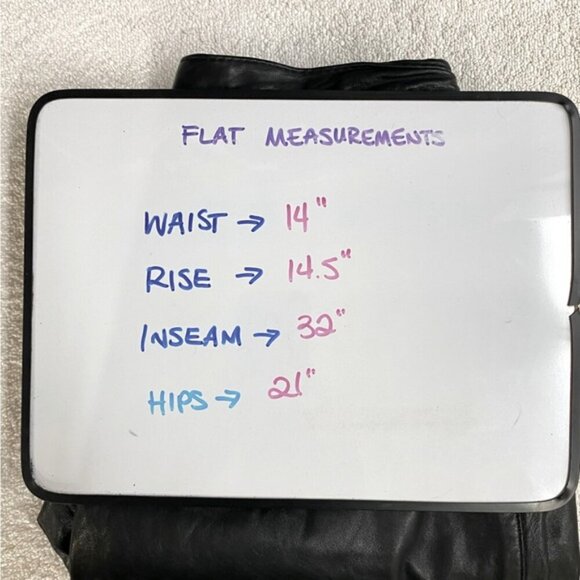 FLAT MEASUREMENTS
WAIST → 14"
RISE → 14.5"
INSEAM → 32"
HIPS → 21"